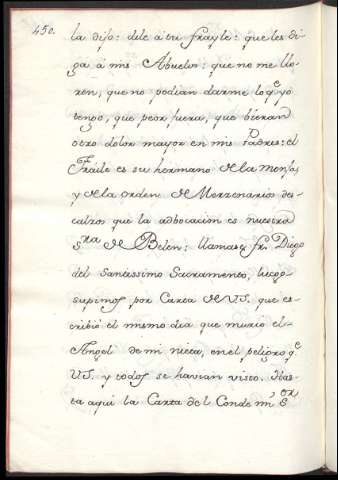 450.
la dijo: dile à tu frayle: que les di-
ga à mis Abuelos: que no me llo-
ren, que no podian darme lo q.e yo
tengo, que peor fuera, que bieran
otro dolor mayor en mis Padres: el
Fraile es su hermano de la Monja,
y de la orden de Merzenarios des-
calzos que la adbocacion es nuestra
S.ra de Belen: llamase fr. Diego
del Santissimo Sacramento, luego
supimos por Carta de VS. que es-
cribiò el mismo dia que murio el
Angel de mi nieta, en el peligro q.e
VS. y todos se havian visto. Has-
ta aqui la Carta del Conde mi S.or